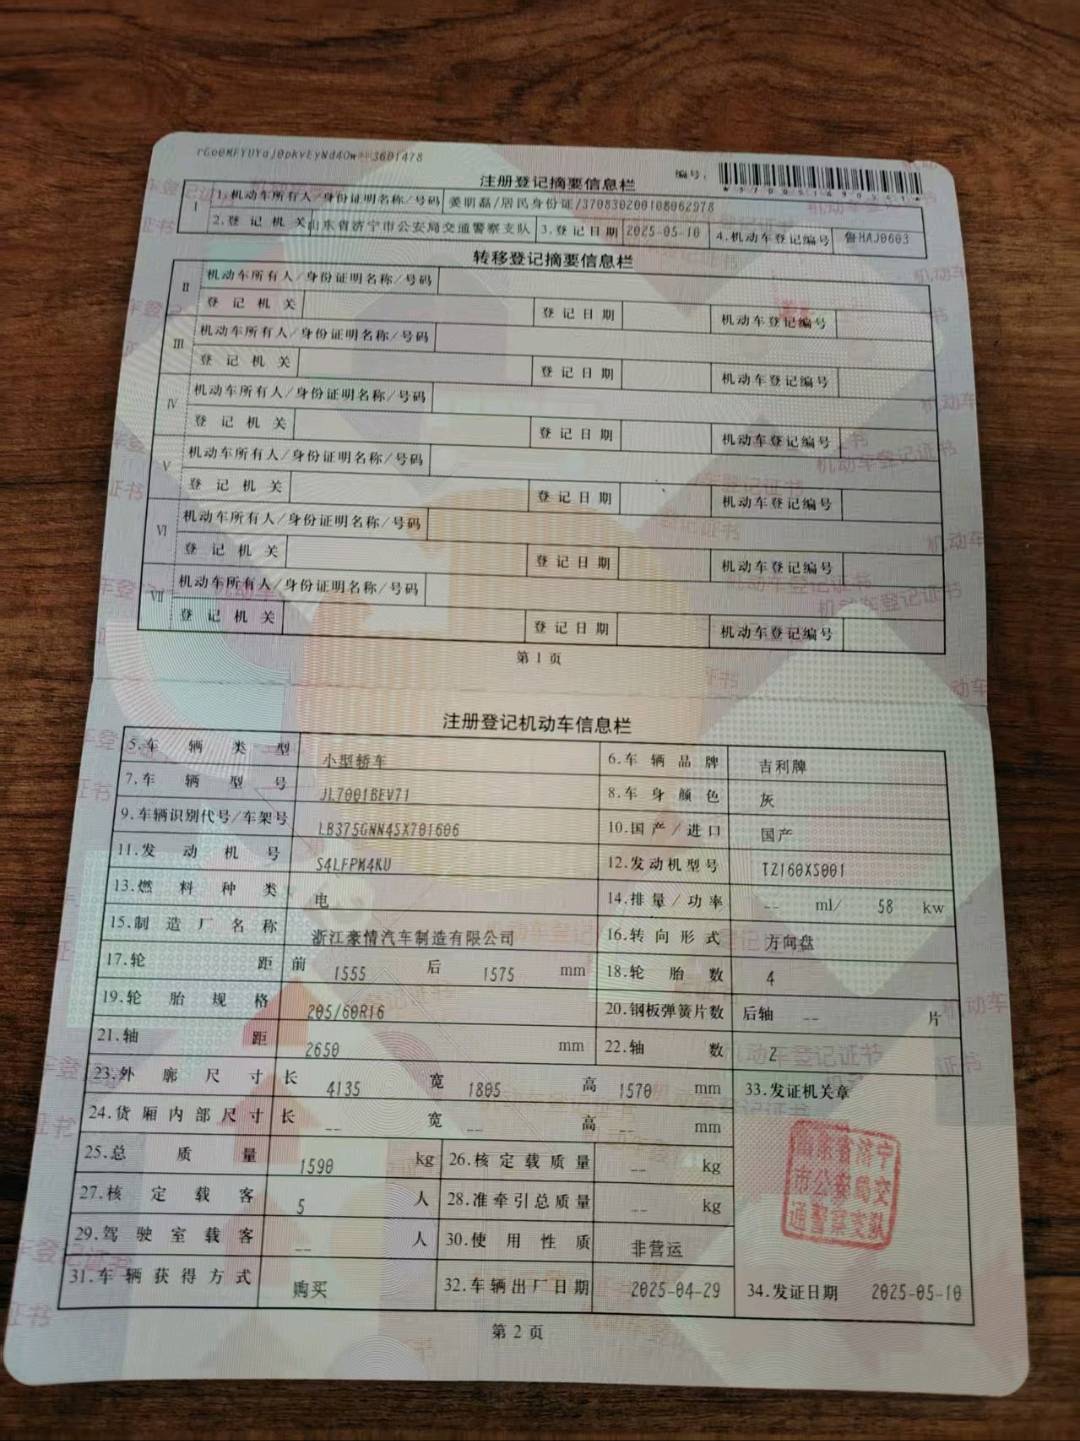 rGo0MFYUYaJ0pKvEyNd4Ow 3601478
注册登记摘要信息栏
编号:
I 1.机动车所有人/身份证明名称/号码 姜明磊/居民身份证/370830200108062978
2.登记机关 山东省济宁市公安局交通警察支队 3.登记日期 2025-05-10 4.机动车登记编号 鲁HAJ0603
转移登记摘要信息栏
II 机动车所有人/身份证明名称/号码
登记机关 登记日期 机动车登记编号
III 机动车所有人/身份证明名称/号码
登记机关 登记日期 机动车登记编号
IV 机动车所有人/身份证明名称/号码
登记机关 登记日期 机动车登记编号
V 机动车所有人/身份证明名称/号码
登记机关 登记日期 机动车登记编号
VI 机动车所有人/身份证明名称/号码
登记机关 登记日期 机动车登记编号
VII 机动车所有人/身份证明名称/号码
登记机关 登记日期 机动车登记编号
第1页
注册登记机动车信息栏
5.车辆类型 小型轿车 6.车辆品牌 吉利牌
7.车辆型号 JL7001BEV71 8.车身颜色 灰
9.车辆识别代号/车架号 LB375GNN4SX701606 10.国产/进口 国产
11.发动机号 S4LFPM4KU 12.发动机型号 TZ160XS001
13.燃料种类 电 14.排量/功率 -- ml/ 58 kw
15.制造厂名称 浙江豪情汽车制造有限公司 16.转向形式 方向盘
17.轮距 前 1555 后 1575 mm 18.轮胎数 4
19.轮胎规格 205/60R16 20.钢板弹簧片数 后轴 -- 片
21.轴距 2650 mm 22.轴数 2
23.外廓尺寸 长 4135 宽 1805 高 1570 mm 33.发证机关章
24.货厢内部尺寸 长 -- 宽 -- 高 -- mm
25.总质量 1590 kg 26.核定载质量 -- kg
27.核定载客 5 人 28.准牵引总质量 -- kg
29.驾驶室载客 -- 人 30.使用性质 非营运
31.车辆获得方式 购买 32.车辆出厂日期 2025-04-29 34.发证日期 2025-05-10
山东省济宁
市公安局交
通警察支队
第2页